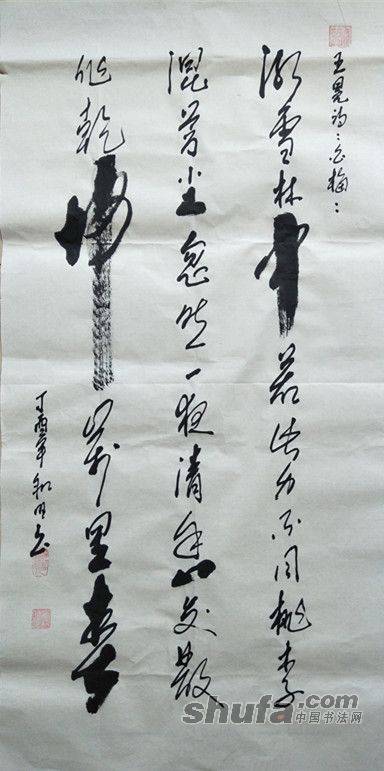 王冕诗：白梅：
冰雪林中著此身不同桃李
混芳尘忽然一夜清香发散
作乾坤万里春
丁酉年
shufa.com
中国书法网